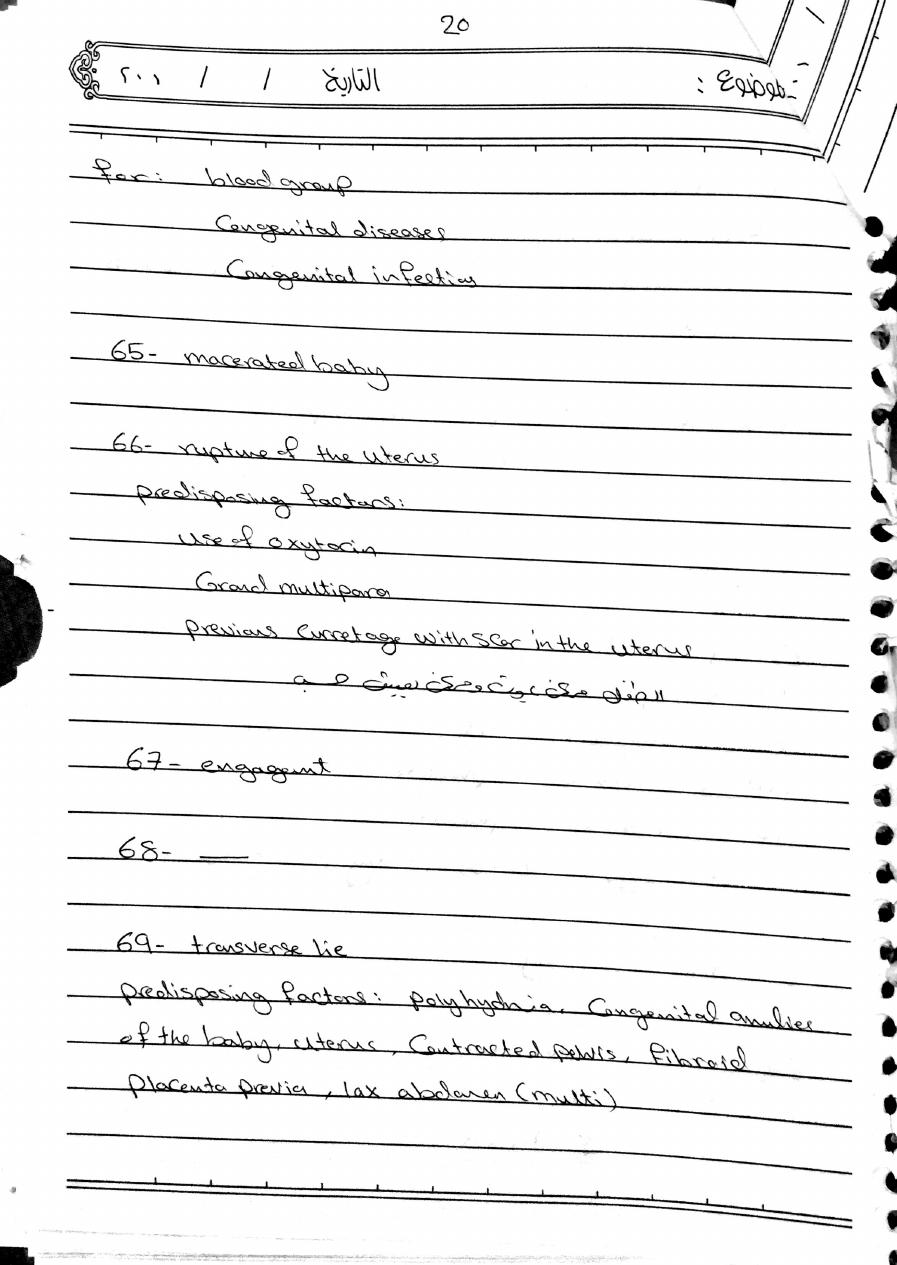 20
موضوع :
التاريخ / / ٢٠١
for: blood group
Congenital diseases
Congenital infection
65- macerated baby
66- rupture of the uterus
predisposing factors:
use of oxytocin
Grand multipara
previous curretage with scar in the uterus
الطفل ممكن يموت وممكن يعيش
67- engagemnt
68- —
69- transverse lie
predisposing factors: polyhydnia, Congenital anulies
of the baby, uterus, Contracted pelvis, fibroid
placenta previa, lax abdomen (multi)